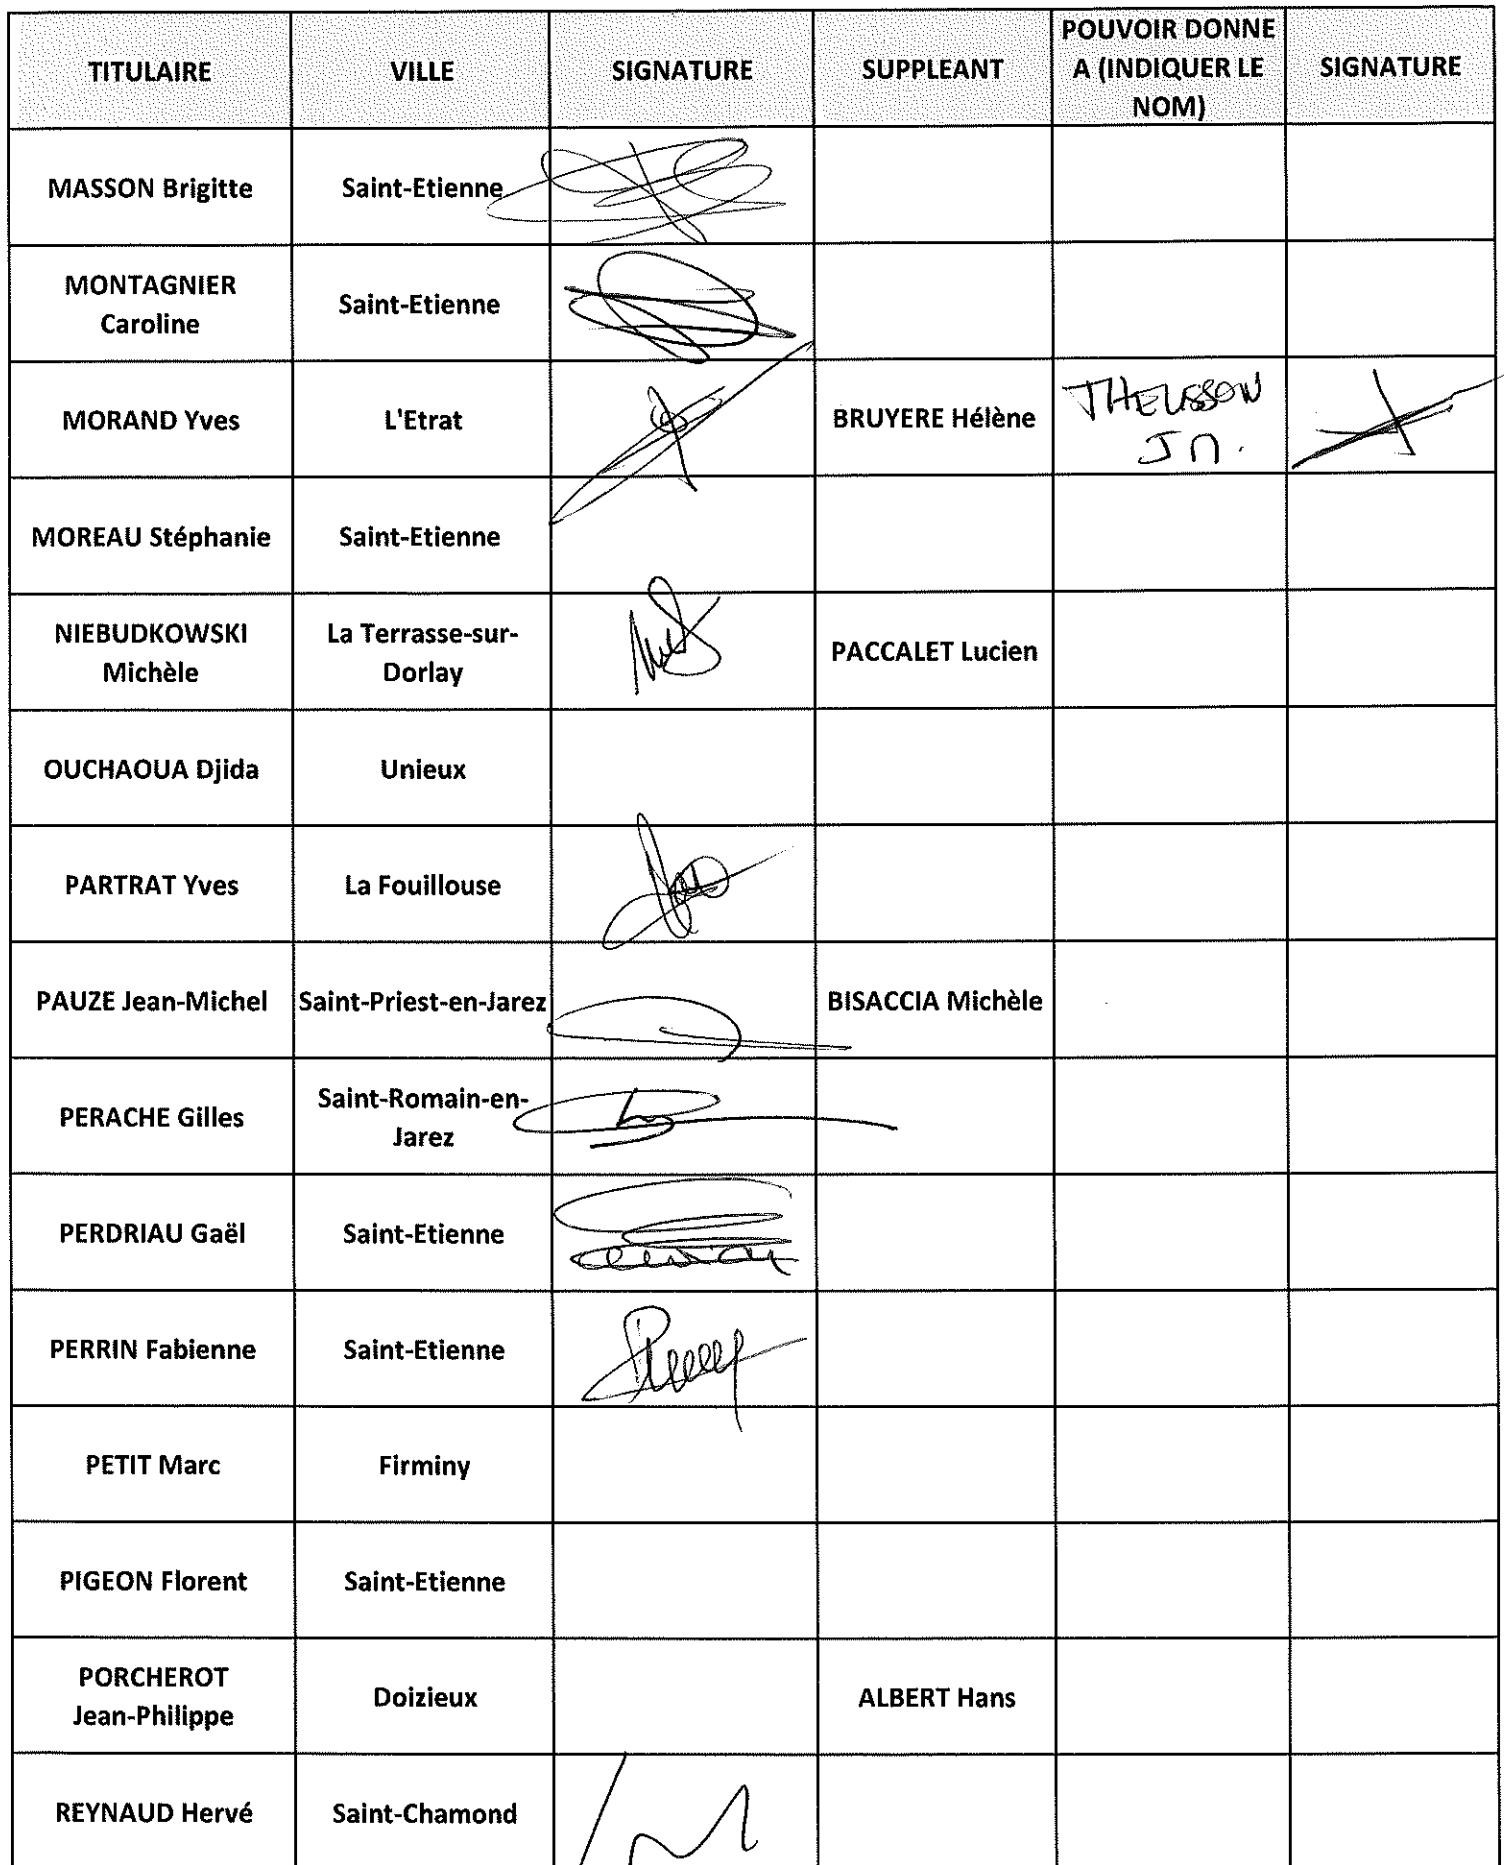 TITULAIRE VILLE SIGNATURE SUPPLEANT POUVOIR DONNE A (INDIQUER LE NOM) SIGNATURE
MASSON Brigitte Saint-Etienne
MONTAGNIER Caroline Saint-Etienne
MORAND Yves L'Etrat BRUYERE Hélène
MOREAU Stéphanie Saint-Etienne
NIEBUDKOWSKI Michèle La Terrasse-sur-Dorlay PACCALET Lucien
OUCHAOUA Djida Unieux
PARTRAT Yves La Fouillouse
PAUZE Jean-Michel Saint-Priest-en-Jarez BISACCIA Michèle
PERACHE Gilles Saint-Romain-en-Jarez
PERDRIAU Gaël Saint-Etienne
PERRIN Fabienne Saint-Etienne
PETIT Marc Firminy
PIGEON Florent Saint-Etienne
PORCHEROT Jean-Philippe Doizieux ALBERT Hans
REYNAUD Hervé Saint-Chamond